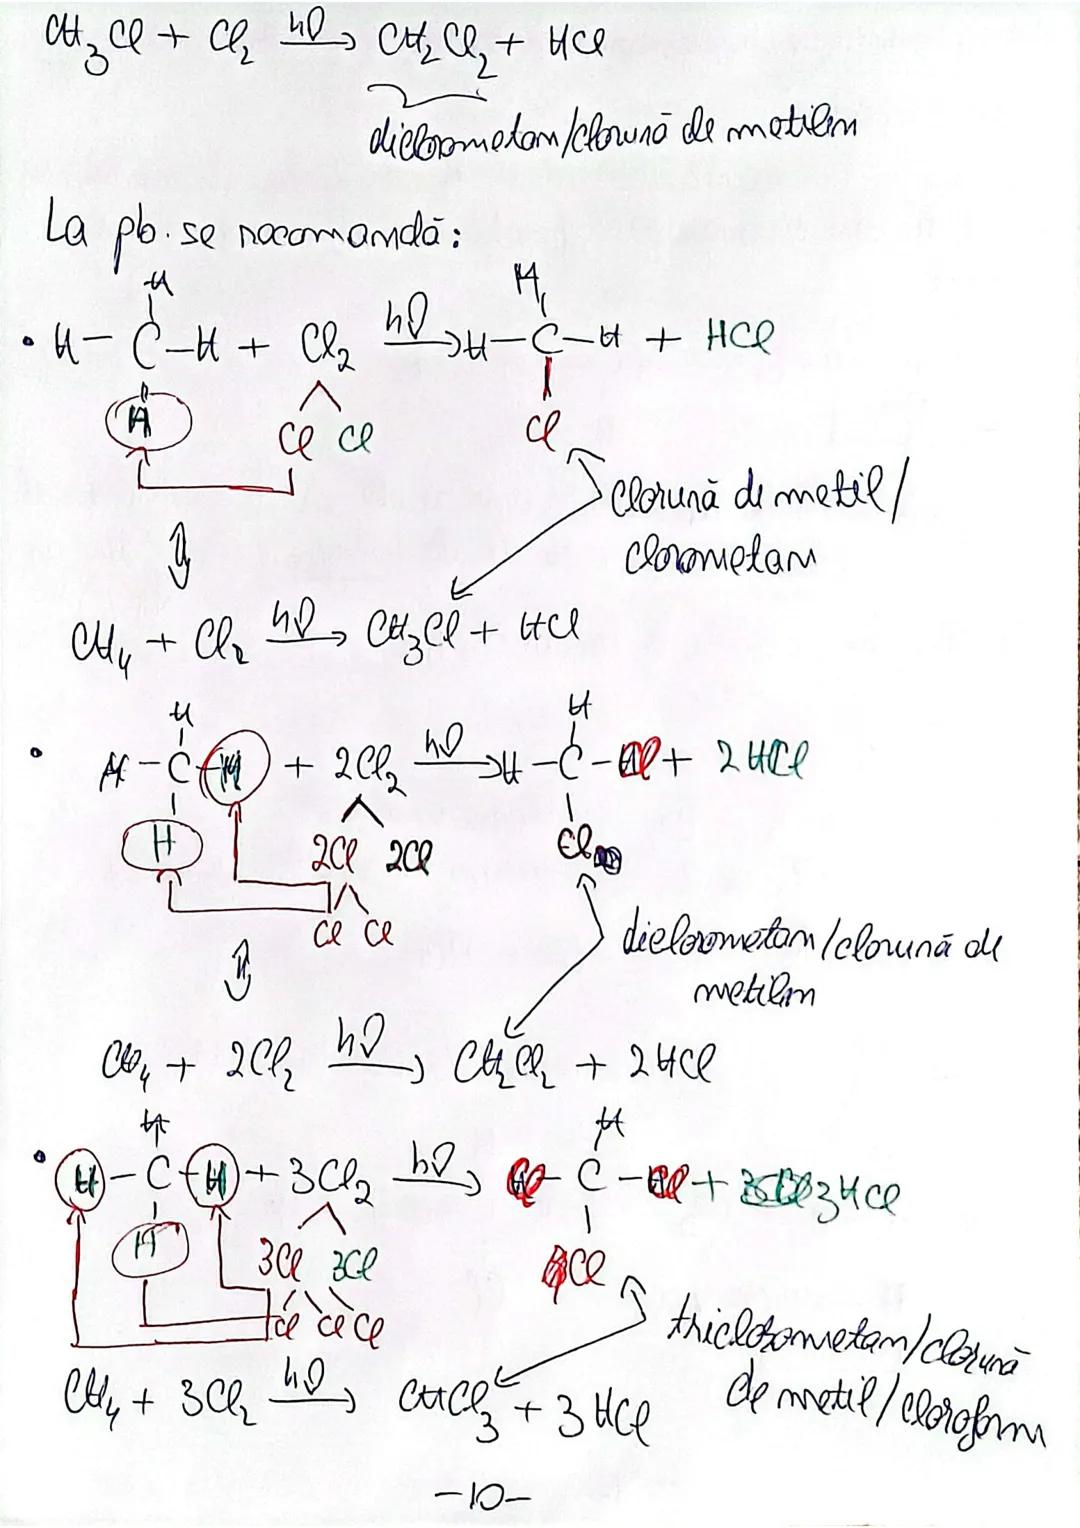 CH₃Cl + Cl₂ hν→ CH₂Cl₂ + HCl
diclorometan/clorură de metilen
La pb. se recomandă:
H
H
• H–C–H + Cl₂ hν→ H–C–H + HCl
H
Cl Cl
Cl
clorură de metil/
clorometan
CH₄ + Cl₂ hν→ CH₃Cl + HCl
H
H
• H–C–H + 2Cl₂ hν→ H–C–Cl + 2HCl
H
2Cl 2Cl
Cl
Cl Cl
diclorometan/clorură de
metilen
CH₄ + 2Cl₂ hν→ CH₂Cl₂ + 2HCl
H
H
• H–C–H + 3Cl₂ hν→ Cl–C–Cl + 3HCl
H
3Cl 3Cl
Cl
Cl Cl Cl
triclorometan/clorură
de metil/cloroform
CH₄ + 3Cl₂ hν→ CHCl₃ + 3HCl
-10-